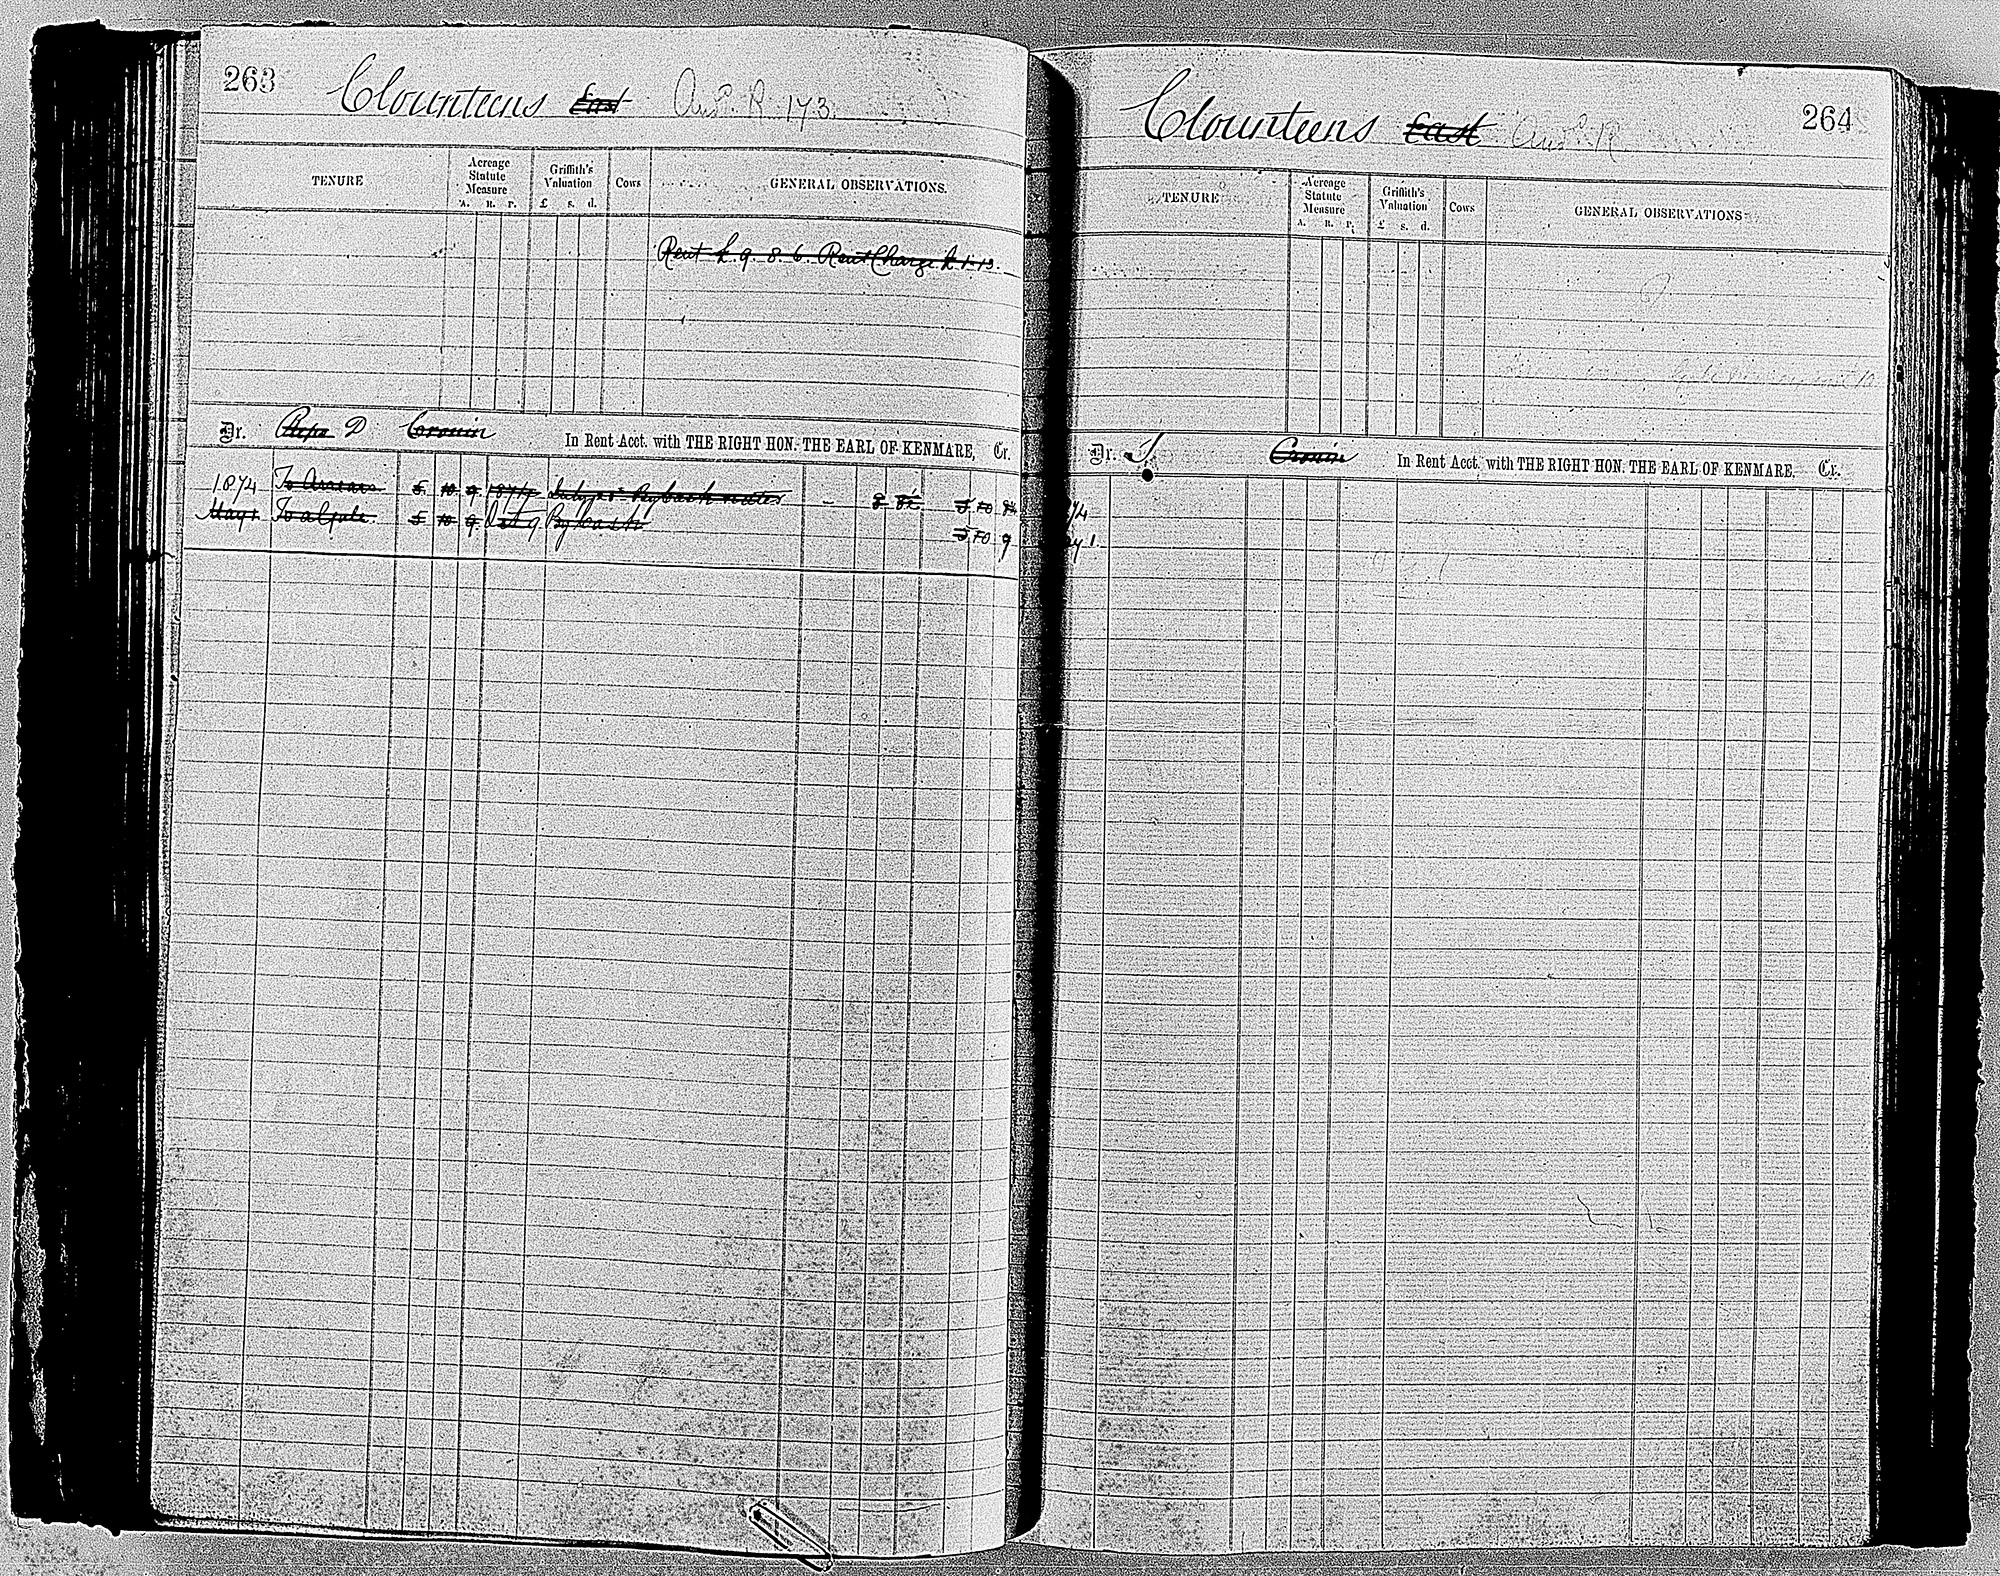 263
Clounteens East And. R. 173.
TENURE
Acreage Statute Measure
A. R. P.
Griffith's Valuation
£ s. d.
Cows
GENERAL OBSERVATIONS.
Rent £ 9. 8. 6. Rent Charge £ 1-13.
Dr. D Cronin In Rent Acct. with THE RIGHT HON. THE EARL OF KENMARE, Cr.
1874 To Arrears 5 10 9 1874 By Cash 5 10 9
May 1 To a Gale 5 10 9 Oct 9 By Cash 5 10 9
264
Clounteens East And. R
TENURE
Acreage Statute Measure
A. R. P.
Griffith's Valuation
£ s. d.
Cows
GENERAL OBSERVATIONS
Dr. J. Cronin In Rent Acct. with THE RIGHT HON. THE EARL OF KENMARE. Cr.
74
y 1.